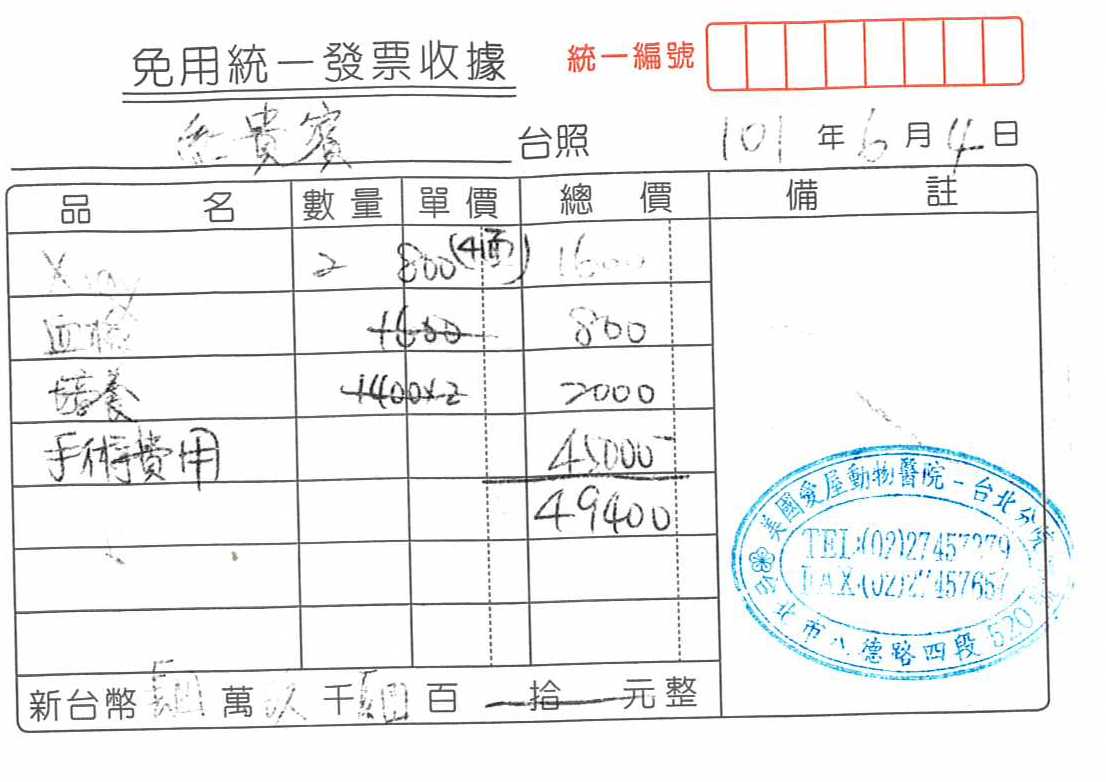 免用統一發票收據 統一編號
紅貴賓 台照 101年6月4日
品名 數量 單價 總價 備註
X ray 2 800(4面) 1600
血檢 1600 800
培養 1400x2 2000
手術費用 45000
49400
新台幣 肆萬玖千肆百一拾元整
美國愛屋動物醫院-台北分院
TEL:(02)27457279
FAX:(02)27457657
台北市八德路四段520